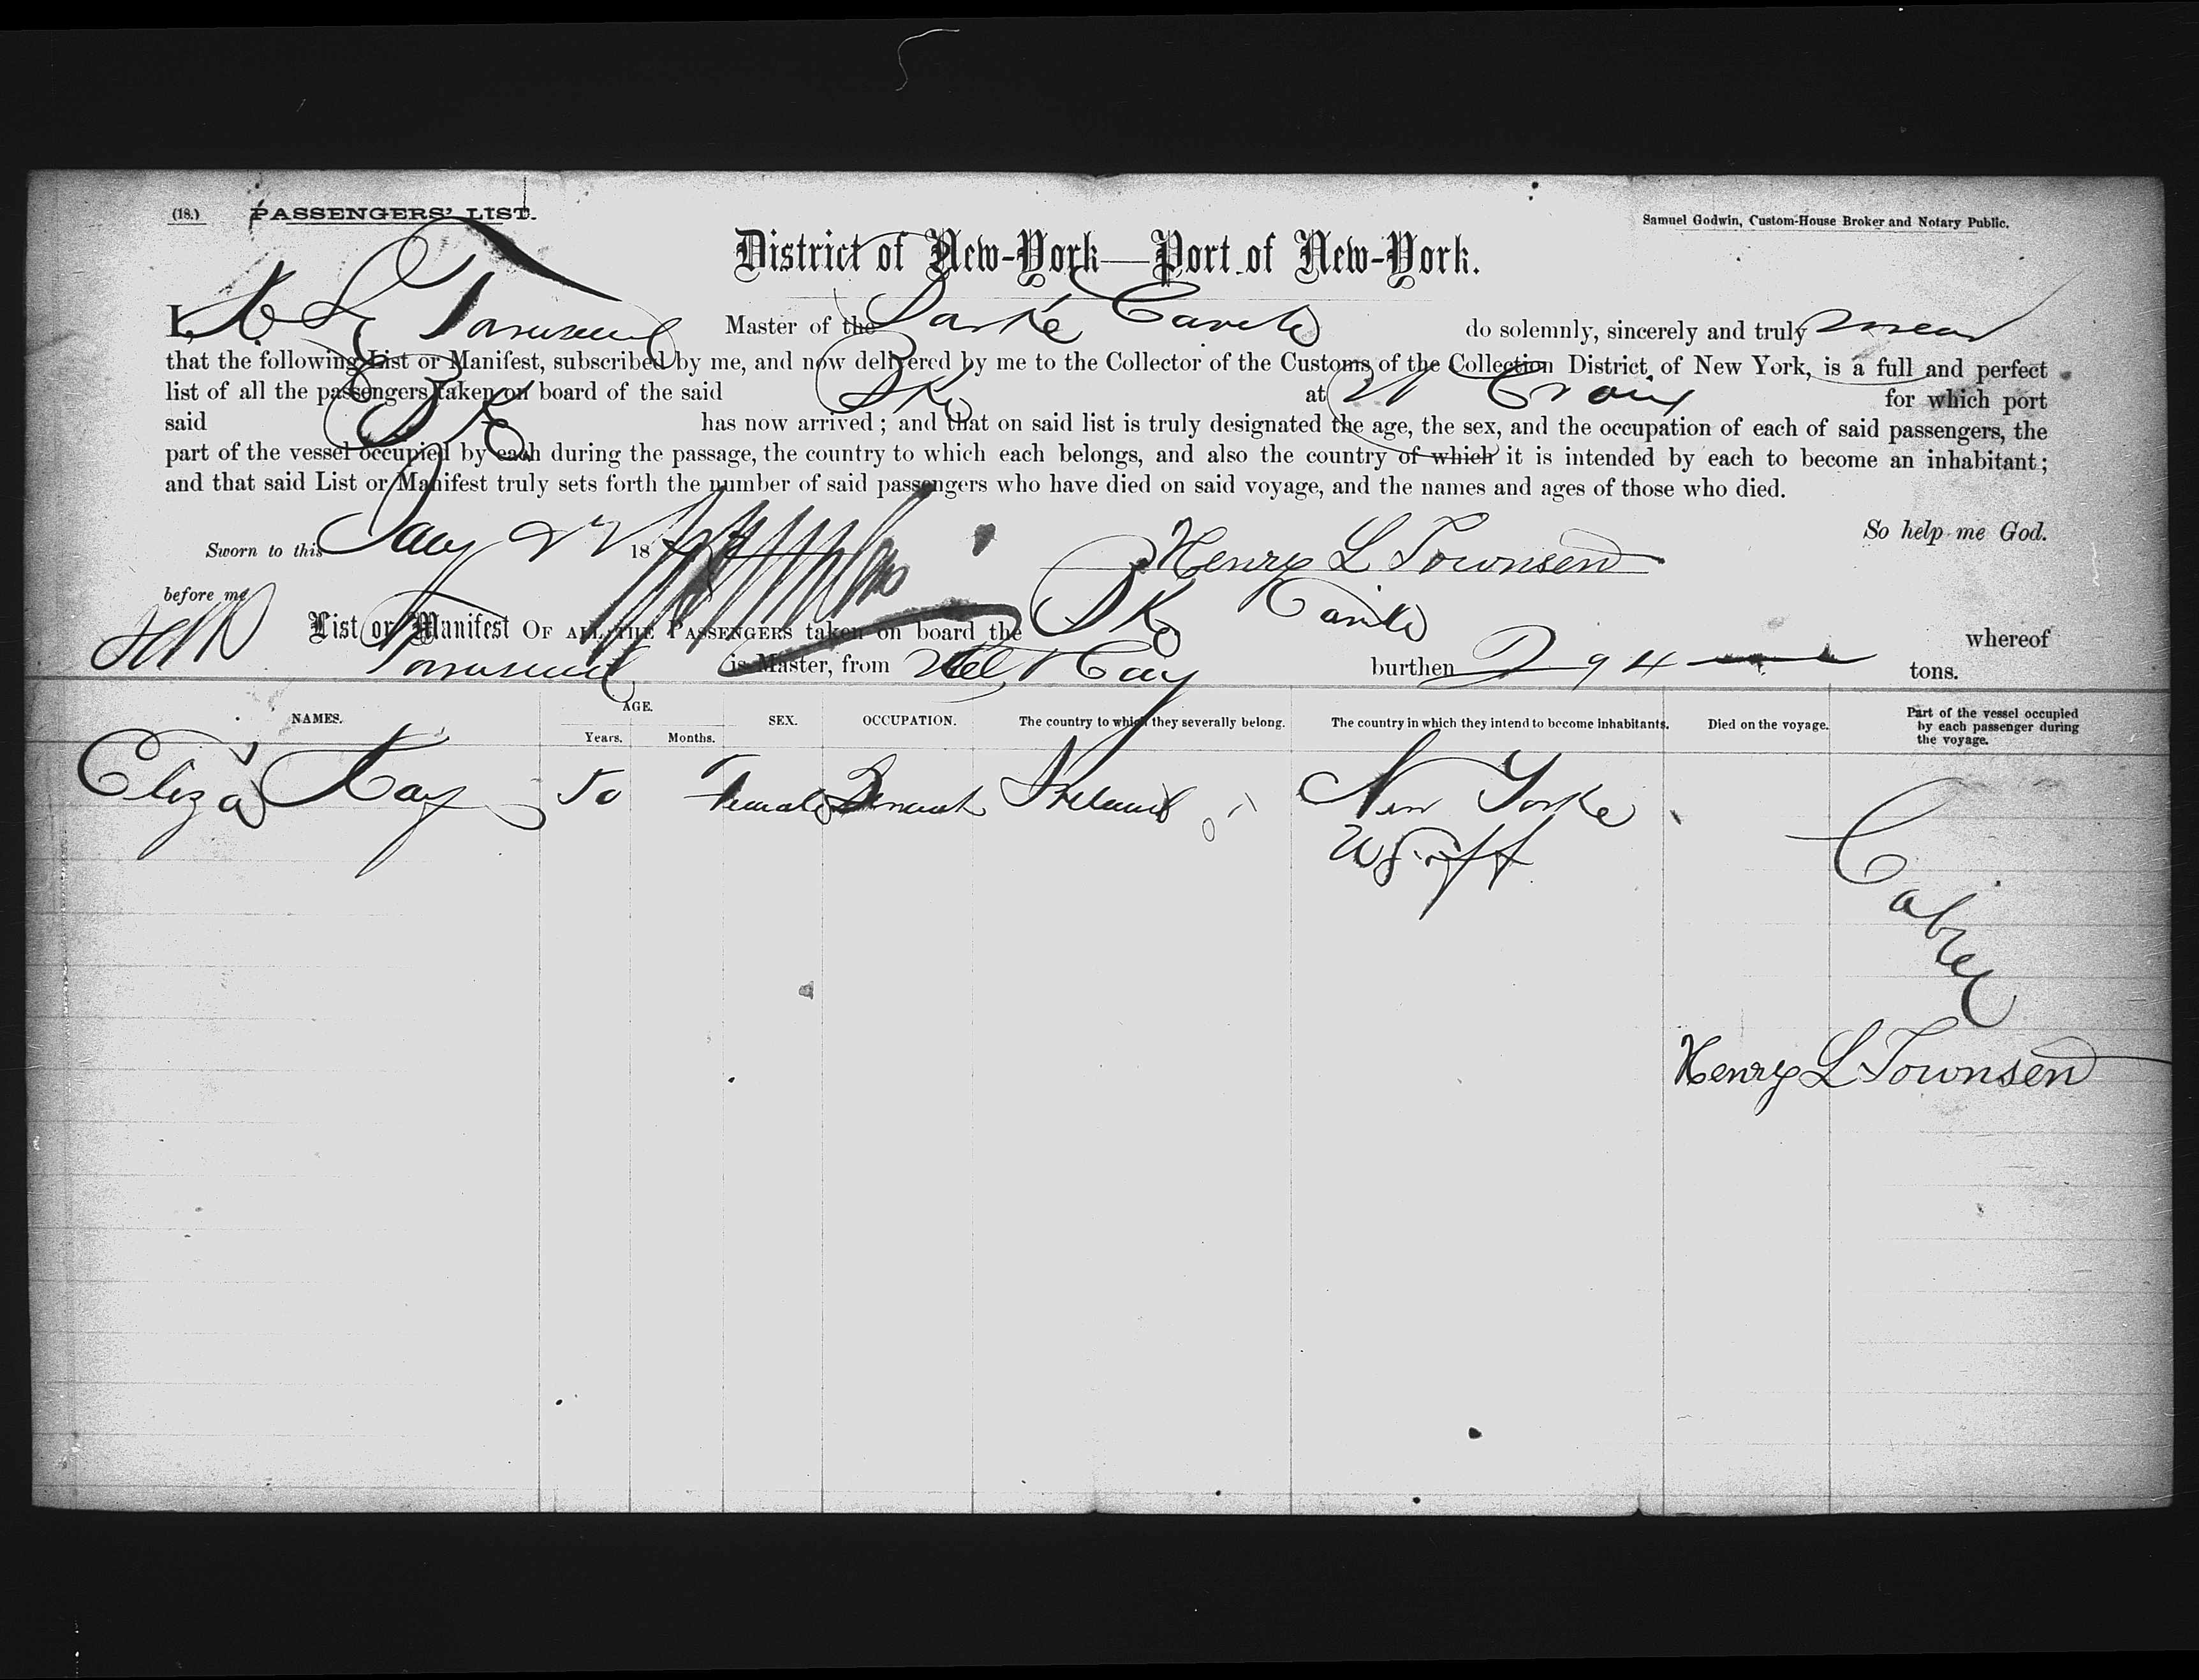 (18.) PASSENGERS' LIST.
Samuel Godwin, Custom-House Broker and Notary Public.
District of New-York—Port of New-York.
I, H L Townsend Master of the Barke do solemnly, sincerely and truly swear
that the following List or Manifest, subscribed by me, and now delivered by me to the Collector of the Customs of the Collection District of New York, is a full and perfect
list of all the passengers taken on board of the said Bk at for which port
said Bk has now arrived; and that on said list is truly designated the age, the sex, and the occupation of each of said passengers, the
part of the vessel occupied by each during the passage, the country to which each belongs, and also the country of which it is intended by each to become an inhabitant;
and that said List or Manifest truly sets forth the number of said passengers who have died on said voyage, and the names and ages of those who died.
So help me God.
Sworn to this 18
Henry L Townsend
before me
List or Manifest OF ALL THE PASSENGERS taken on board the Bk whereof
Townsend is Master, from burthen 294 tons.
NAMES. AGE. Years. Months. SEX. OCCUPATION. The country to which they severally belong. The country in which they intend to become inhabitants. Died on the voyage. Part of the vessel occupied by each passenger during the voyage.
Eliza Kay 50 Female Ireland New Yorke Cabin
Henry L Townsend